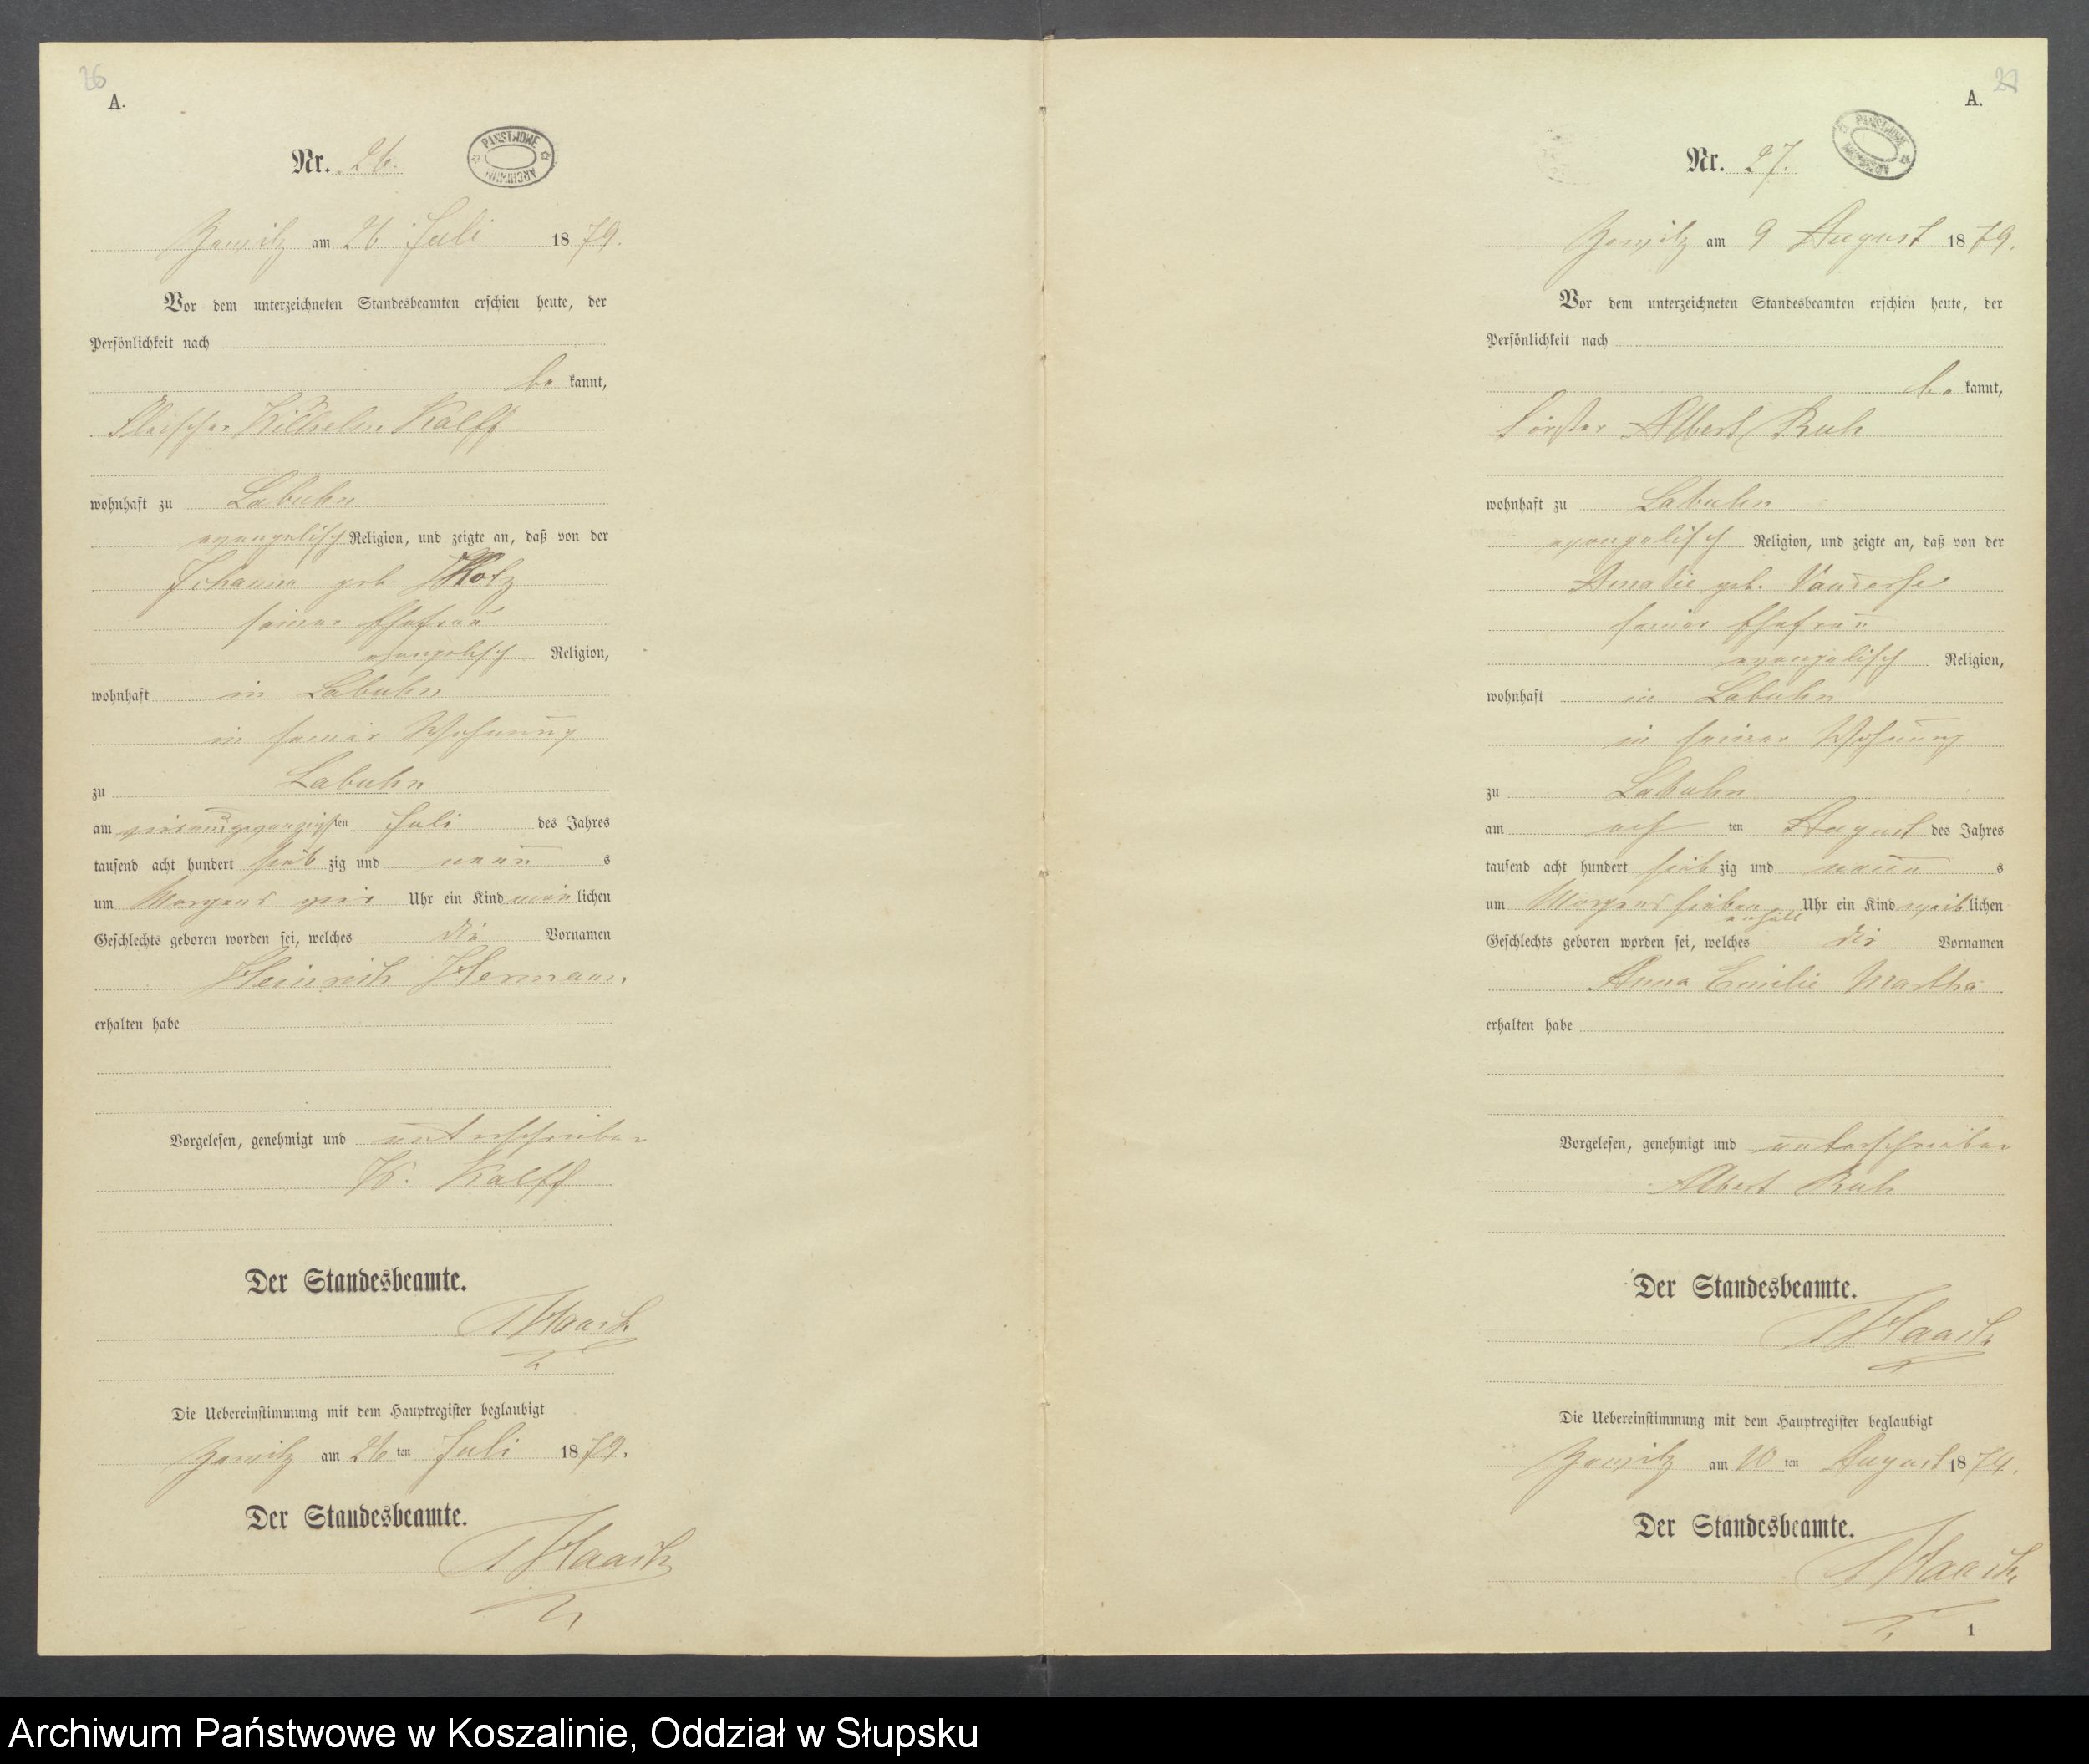 26
A.
Nr. 26.
PAŃSTWOWE ARCHIWUM
Zewitz am 26 Juli 1879.
Vor dem unterzeichneten Standesbeamten erschien heute, der
Persönlichkeit nach
be kannt,
Fleischer Wilhelm Kalff
wohnhaft zu Labuhn
evangelisch Religion, und zeigte an, daß von der
Johanna geb. Kotz
seiner Ehefrau
evangelisch Religion,
wohnhaft in Labuhn
in seiner Wohnung
zu Labuhn
am vierundzwanzigsten Juli des Jahres
tausend acht hundert sieb zig und neun s
um Morgens vier Uhr ein Kind män lichen
Geschlechts geboren worden sei, welches die Vornamen
Heinrich Hermann.
erhalten habe
Vorgelesen, genehmigt und unterschrieben
W. Kalff
Der Standesbeamte.
Haack
Die Uebereinstimmung mit dem Hauptregister beglaubigt
Zewitz am 26 ten Juli 1879.
Der Standesbeamte.
Haack
27
A.
Nr. 27.
PAŃSTWOWE ARCHIWUM
Zewitz am 9 August 1879.
Vor dem unterzeichneten Standesbeamten erschien heute, der
Persönlichkeit nach
be kannt,
Förster Albert Ruh
wohnhaft zu Labuhn
evangelisch Religion, und zeigte an, daß von der
Amalie geb.
seiner Ehefrau
evangelisch Religion,
wohnhaft in Labuhn
in seiner Wohnung
zu Labuhn
am ach ten August des Jahres
tausend acht hundert sieb zig und neun s
um Morgens sieben Uhr ein Kind weib lichen
Geschlechts geboren worden sei, welches die Vornamen
Anna Emilie Martha
erhalten habe
Vorgelesen, genehmigt und unterschrieben
Albert Ruh
Der Standesbeamte.
Haack
Die Uebereinstimmung mit dem Hauptregister beglaubigt
Zewitz am 10 ten August 1879.
Der Standesbeamte.
Haack
1
Archiwum Państwowe w Koszalinie, Oddział w Słupsku